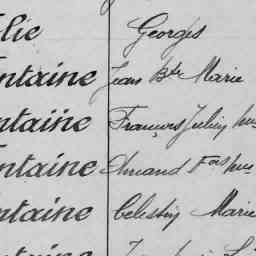 lie Georges
ntaine Jean Bte Marie
ntaine François Julien
ntaine Amand Fois
ntaine Célestin Marie
ntaine